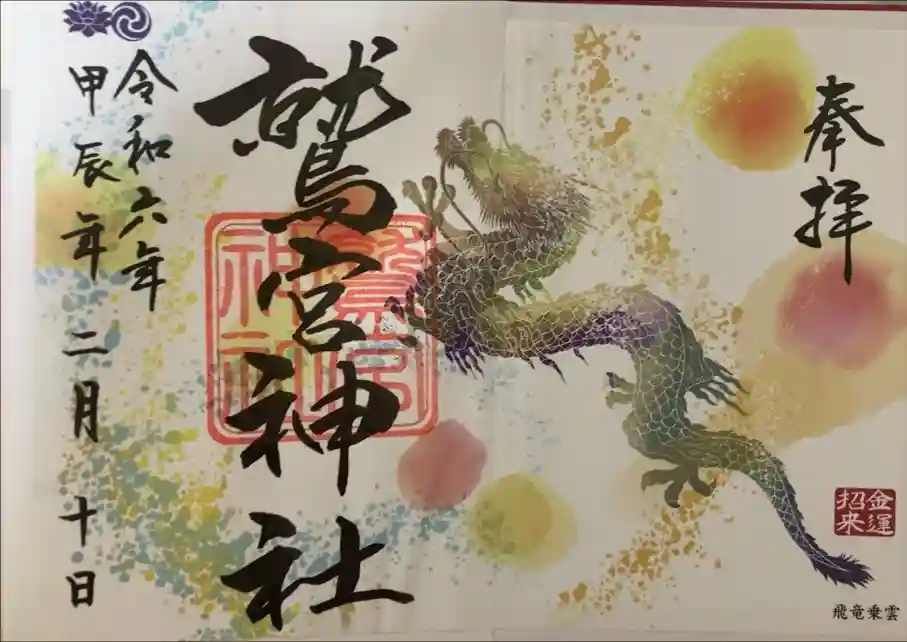 奉拝
金運
招来
飛竜乗雲
鷲宮神社
鷲宮
神社
令和六年
甲辰年二月十日